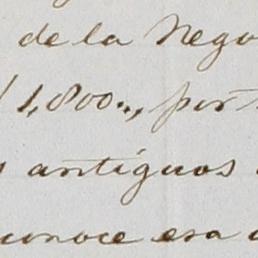 de la Nego
1,800.., por
antiguos
conoce esa